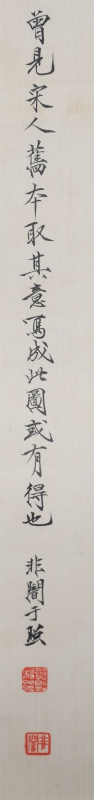 曾見宋人舊本取其意寫成此圖或有得也
非闇于照